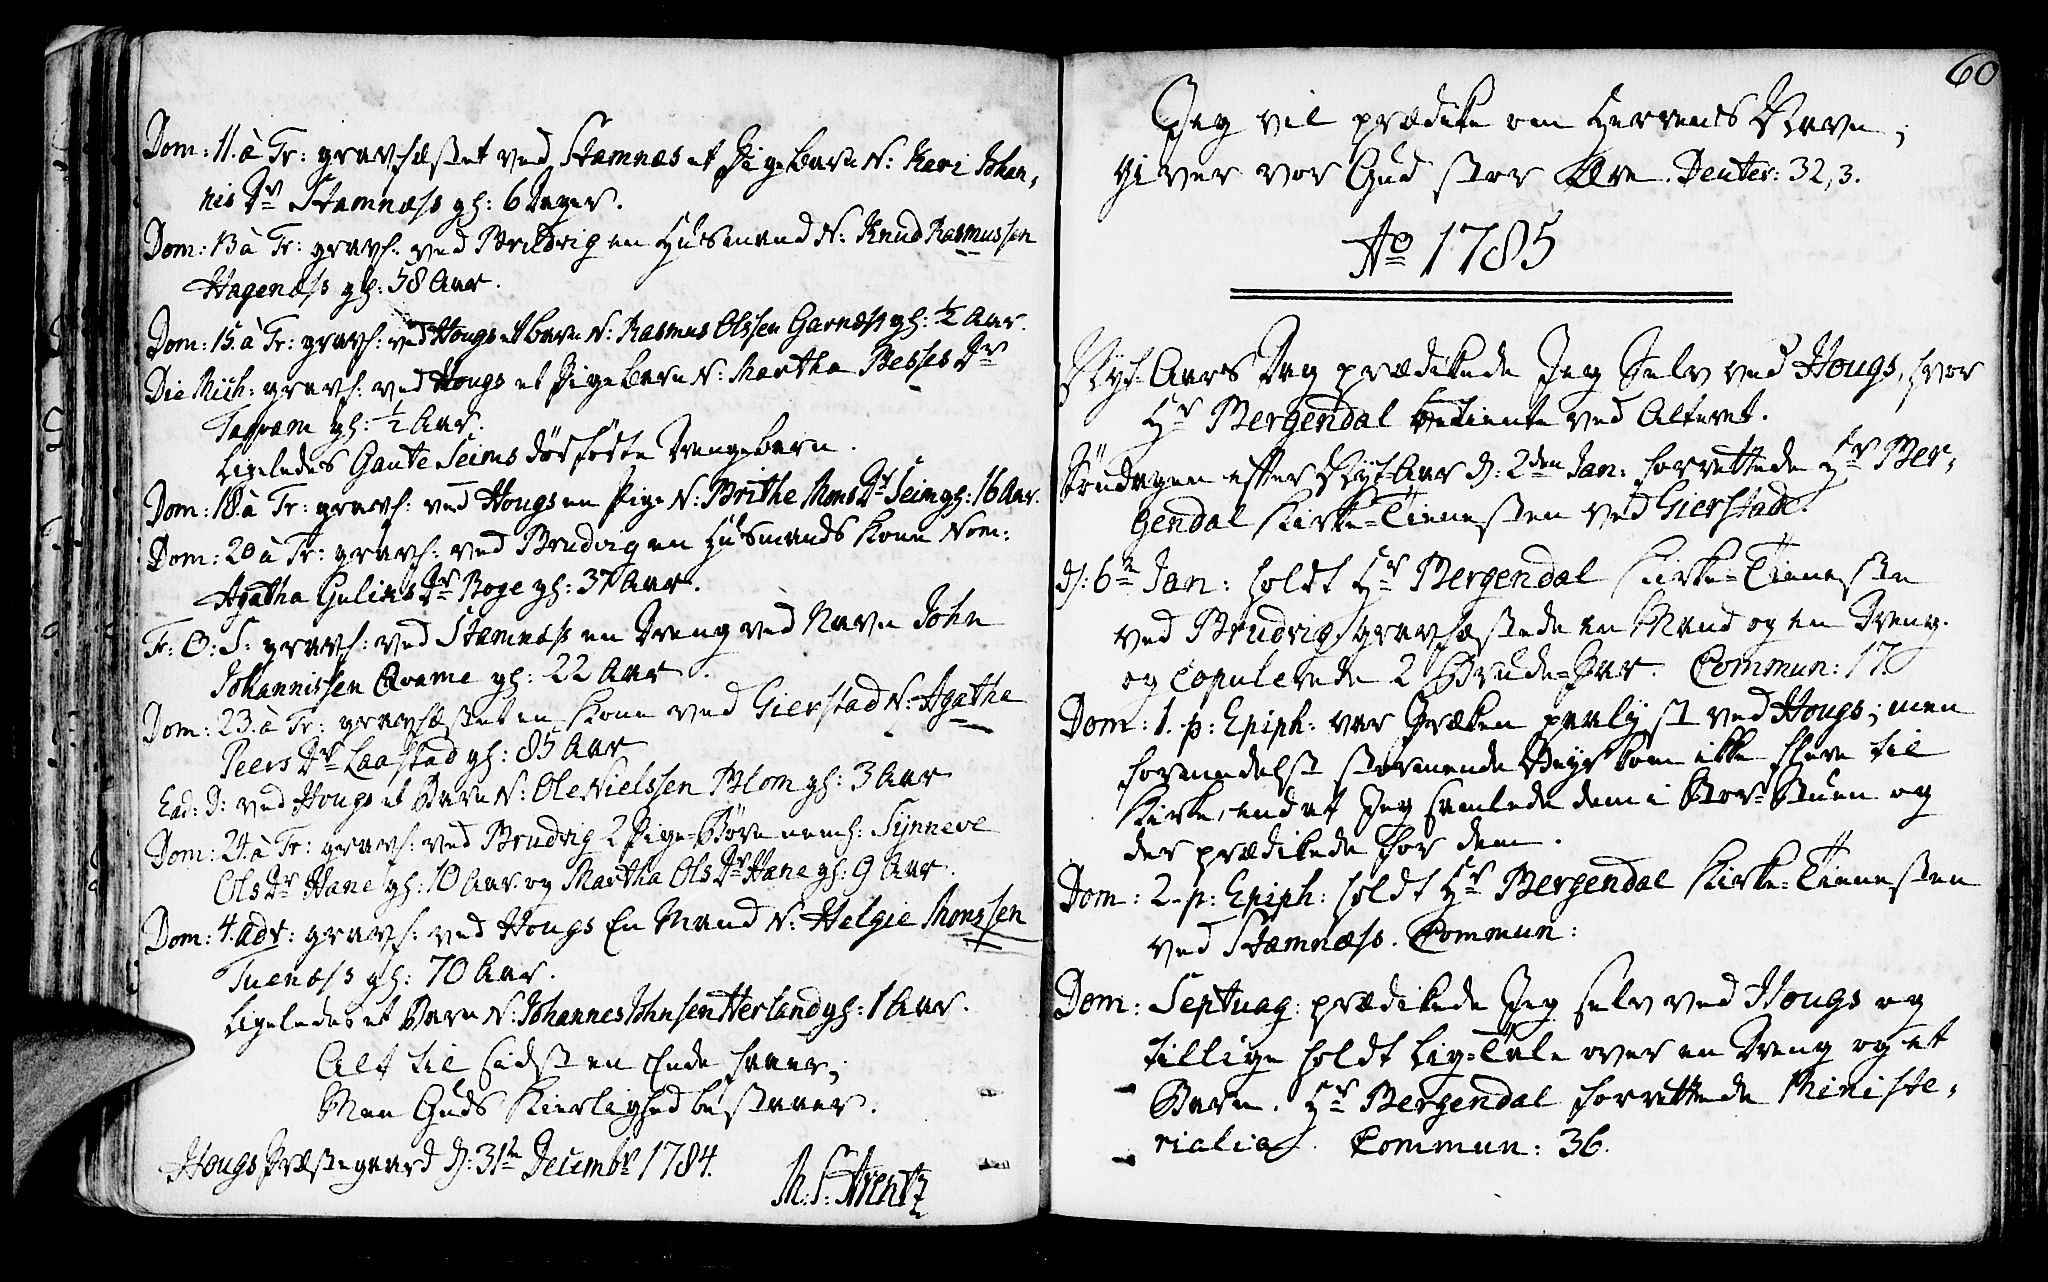 Dom: 11. à Tr: gravfæstet ved Stamnæs et Pigebarn N: Kari Johan-
nis Dr Stamnæss gl: 6 Dager.
Dom: 13 à Tr: gravf: ved Brudvig en Huusmand N: Knud Rasmussen
Hagenæss gl: 58 Aar.
Dom: 15. à Tr: gravf: ved Hougs et barn N: Rasmus Olssen Garnæss gl: ½ Aar.
Die Mich: gravf: ved Hougs et Pigebarn N: Martha Besses Dr
gl: ½ Aar.
Ligeledes Gaute Seims dødfødte Drengebarn.
Dom: 18 à Tr: gravf: ved Hougs en Pige N: Brithe Mons Dr Seim gl: 16 Aar.
Dom: 20 à Tr: gravf: ved Brudvig en Huusmands Kone Nom:
Agatha Gulichs Dr Boge gl: 37 Aar.
Fr: O: S: gravf: ved Stamnæss en Dreng ved Navn John
Johannissen Qvame gl: 22 Aar.
Dom: 23. à Tr: gravfæstet en Kone ved Gierstad N: Agatha
Peers Dr Laastad gl: 85 Aar
Ead: D: ved Hougs et Barn N: Ole Nielssen Blom gl: 3 Aar
Dom: 24. à Tr: gravf: ved Brudvig 2 Pige-Børn nemh: Synneve
Ols Dr Hane gl: 10 Aar og Martha Ols Dr Hane gl: 9 Aar.
Dom: 4. Adv: gravf: ved Hougs En Mand N: Helgie Monssen
Tuenæss gl: 70 Aar.
Ligeledes et Barn N: Johannes Johnsen Herland gl: 1 Aar.
Alt til sidst en Ende faaer,
Men Guds Kierlighed bestaaer.
Hougs Præstegaard d: 31te Decembr 1784.
M: S: Arentz
60
Jeg vil prædike om Herrens Navn,
giver vor Gud stor Ære. Deuter: 32, 3.
Ao 1785
Nyt-Aars Dag prædikede Jeg Selv ved Hougs, hvor
Hr Bergendal betiente ved Alteret.
Søndagen efter Nyt-Aar d: 2den Jan: forrettede Hr Ber-
gendal Kirke-Tienesten ved Gierstad.
d: 6te Jan: holdt Hr Bergendal Kirke-Tieneste
ved Brudvig, gravfæstede en Mand og en Dreng.
og Copulerede 2 Brude-Par. Commun: 17.
Dom: 1. p: Epiph: var Præken paalyst ved Hougs; men
formedelst stormende Veyr kom ikke flere til
Kirke, end at Jeg samlede dem i Bor-Stuen og
der prædikede for dem.
Dom: 2. p: Epiph: holdt Hr Bergendal Kirke-Tienesten
ved Stamnæss. Commun:
Dom: Septuag: prædikede Jeg selv ved Hougs og
tillige holdt Lig-Tale over en Dreng og et
Barn. Hr Bergendal forrettede Ministe-
rialia. Commun: 36.